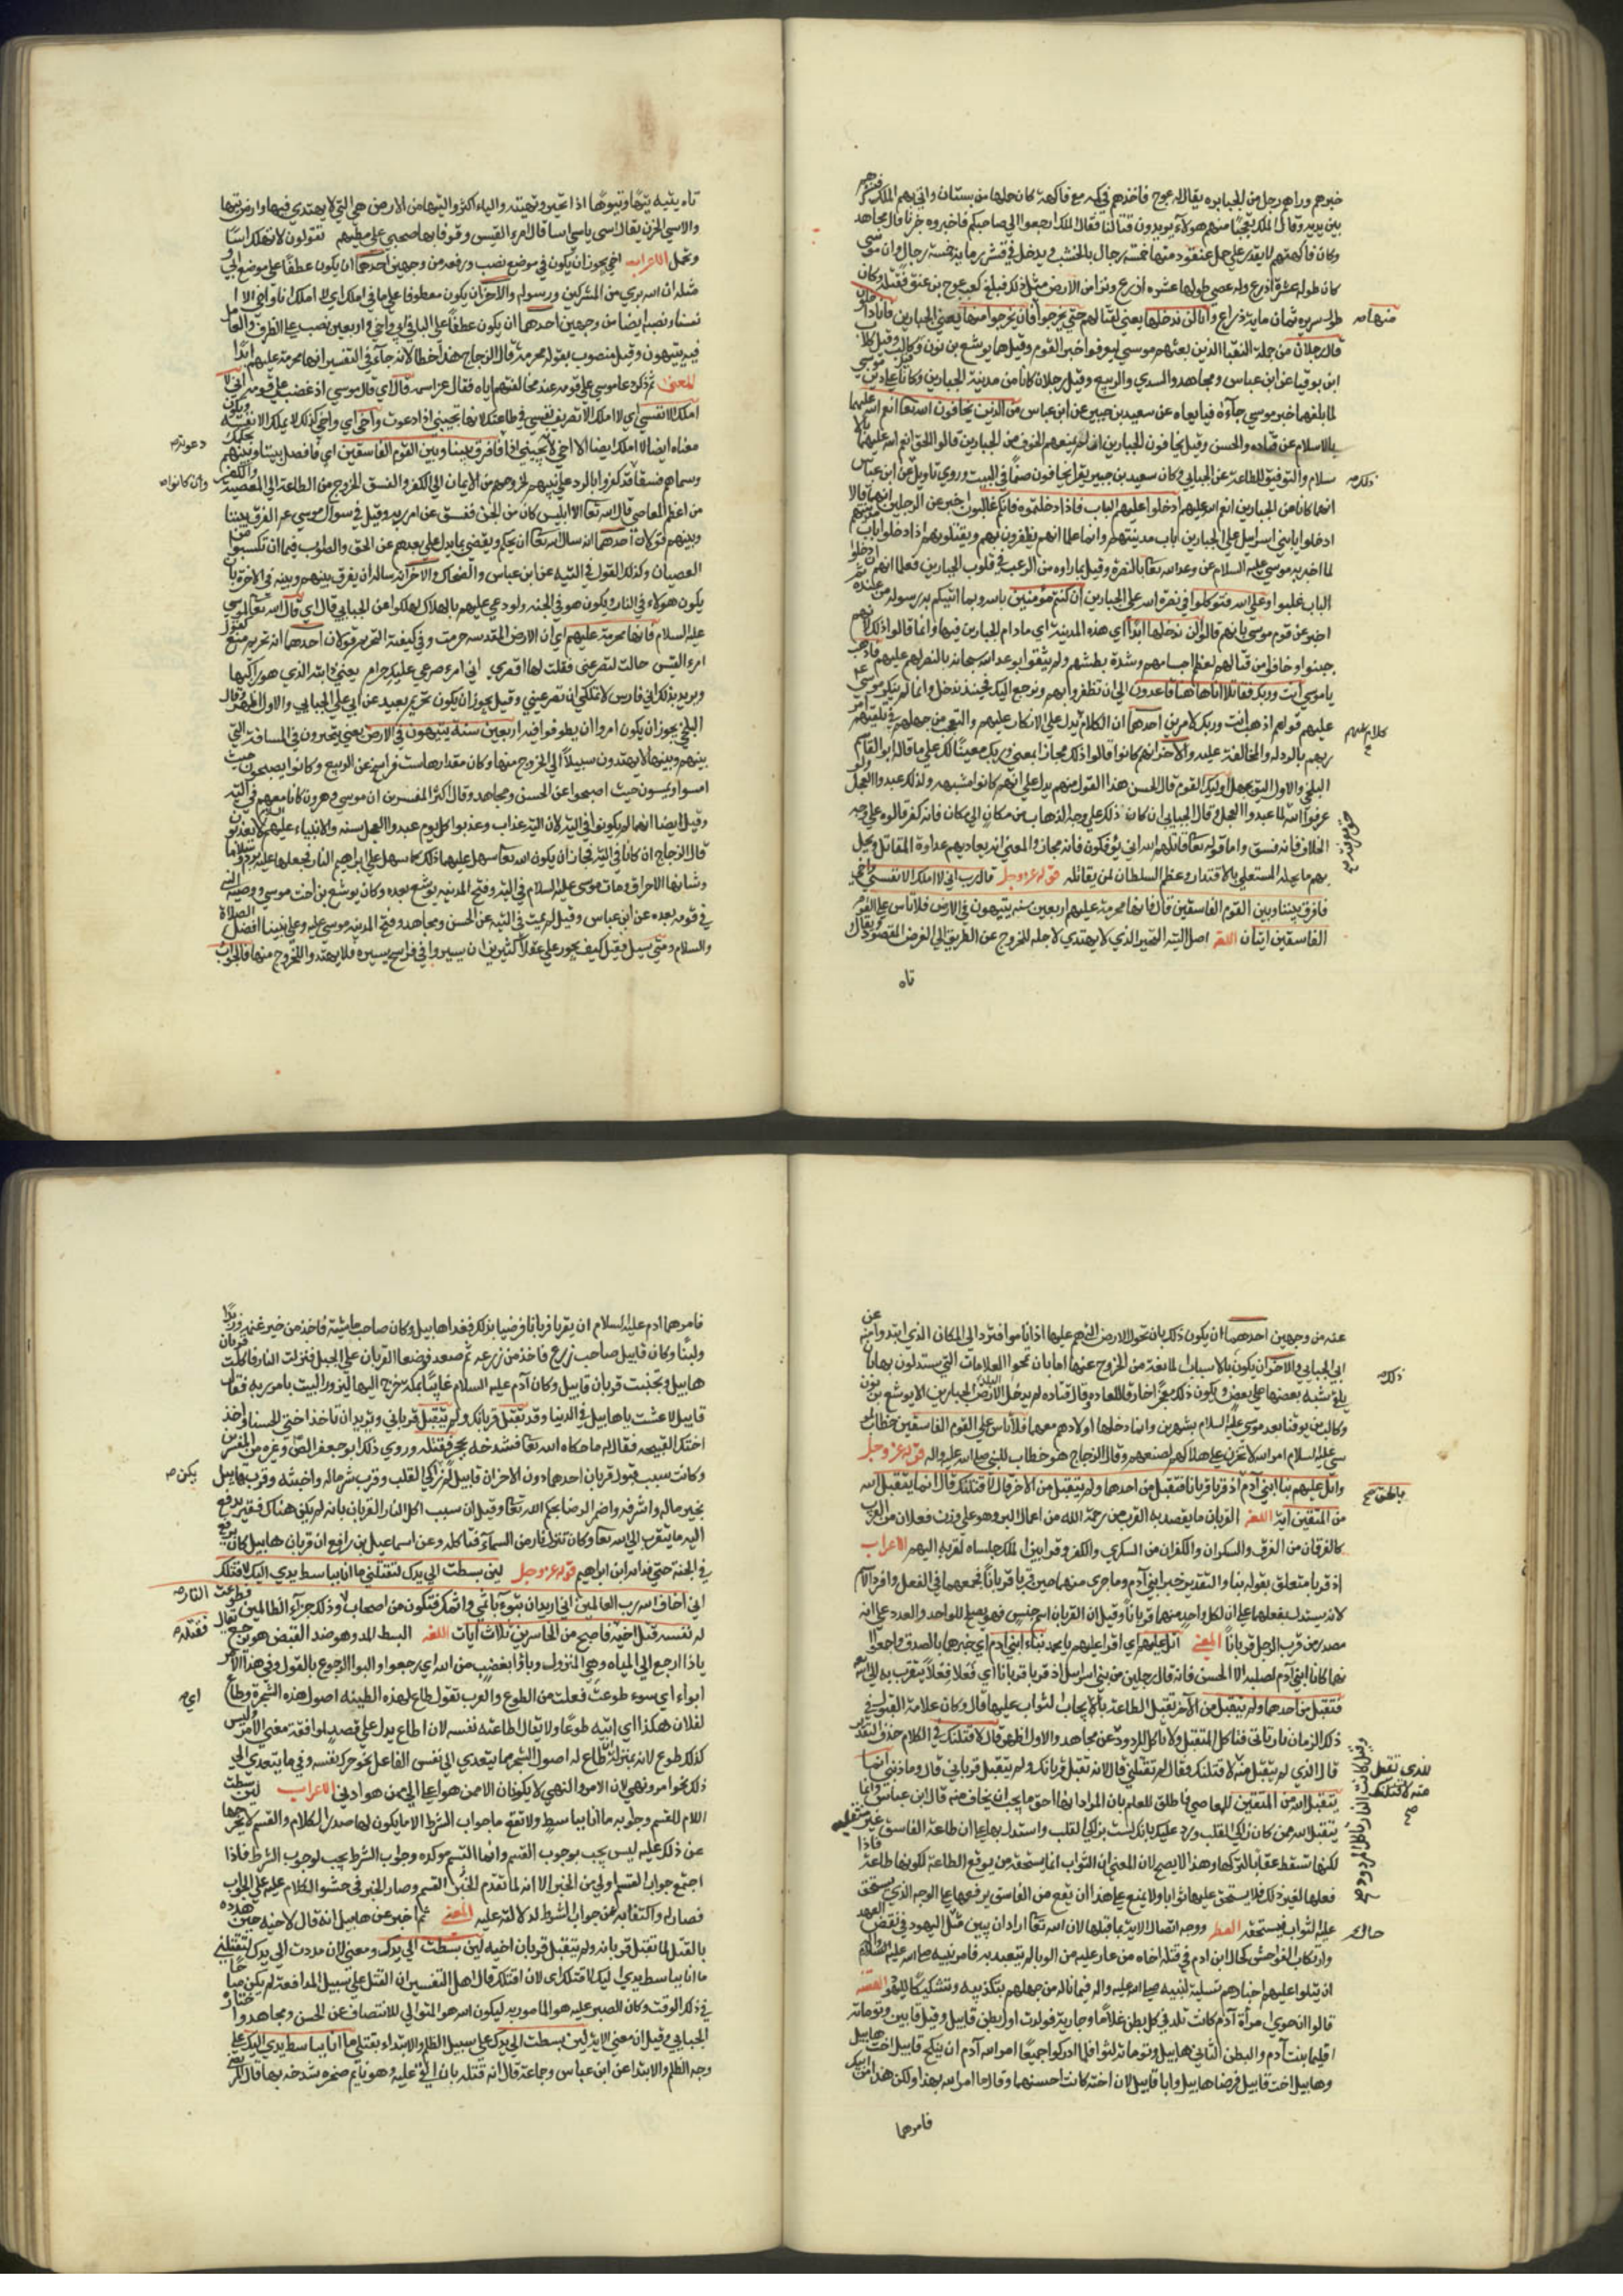 خبرهم وراهم رجل من الجبابره يقال له عوج فاخذهم في كمه مع فاكهة كان حملها من بستان واتي بهم الملك فنثرهم
بين يديه وقال الملك تعجبا منهم هولاء يريدون قتالنا فقال الملك ارجعوا الي صاحبكم فاخبروه خبرنا قال مجاهد
وكان فاكهتهم لا يقدر علي حمل عنقود منها خمسة رجال بالخشب ويدخل في قشر رمانة خمسة رجال وان موسي
كان طوله عشرة اذرع وله عصي طولها عشره اذرع ونزا من الارض مثل ذلك فبلغ كعب عوج بن عنق فقتله وكان
طول سريره ثمان ماية ذراع وانا لن ندخلها يعني لقتالهم حتي يخرجوا فان يخرجوا منها يعني الجبارين فانا داخلون
منها صح
قال رجلان من جملة النقبا الذين بعثهم موسي ليعرفوا خبر القوم وقيل هما يوشع بن نون وكالب وقيل كلاب
ابن يوقيا عن ابن عباس ومجاهد والسدي والربيع وقيل رجلان كانا من مدينة الجبارين وكانا علي دين موسي
لما بلغهما خبر موسي جاءه فبايعاه عن سعيد بن جبير عن ابن عباس من الذين يخافون الله تعا انعم الله عليهما
بالاسلام عن قتاده والحسن وقيل يخافون الجبارين اي لم يمنعهم الخوف من الجبارين قالوا الحق انعم الله عليهما
سلام والتوفيق للطاعة عن الجبايي وكان سعيد بن جبير يقرا يخافون ضما في البيت وروي تاويل عن ابن عباس
ذلك صح
انهما كانا من الجبارين انعم الله عليهم ادخلوا عليهم الباب فاذا دخلتموه فانكم غالبون اخبر عن الرجلين انهما قالا
ادخلوا يا بني اسرايل علي الجبارين باب مدينتهم وانما علما انهم يظفرون بهم ويقتلونهم اذا دخلوا باب
لما اخبر به موسي عليه السلام عن وعد الله تعا بالنصرة وقيل بما راوه من الرعب في قلوب الجبارين فعلما انهم ان دخلوا
الباب غلبوا وعلي الله فتوكلوا في نصرة الله علي الجبارين ان كنتم مؤمنين بالله وبما اتيكم به رسوله من عنده
اخبر عن قوم موسي بانهم قالوا لن ندخلها ابدا اي هذه المدينة اي ما دام الجبارين فيها وانما قالوا ذلك لانهم
جبنوا وخافوا من قتالهم لعظم اجسامهم وشدة بطشهم ولم يثقوا بوعد الله سبحانه بالنصر لهم عليهم فاذهب
يا موسي انت وربك فقاتلا انا هاهنا قاعدون الي ان تظفروا بهم وترجع اليك فحينئذ ندخل وانما لم ينكر موسي
عليهم قولهم اذهب انت وربك لامرين احدهما ان الكلام يدل علي الانكار عليهم والتعجب من جهلهم في تلقيهم
كلام عليهم
ربهم بالرد له والمخالفة عليه والاخر انهم كانوا قالوا ذلك مجازا بمعني وربك معينا لك علي ما قاله ابو القاسم
البلخي والاول اليق بجهل اوليك القوم قال الحسن هذا القول منهم يدل علي انهم كانوا مشبهه ولذلك عبدوا العجل
عرفوا الله لما عبدوا العجل وقال الجبايي ان كان ذلك علي وجه الذهاب من مكان الي مكان فانه كفر قالوه علي وجه
الخلاف فانه فسق واما قوله تعا قاتلهم الله اني يؤفكون فانه مجاز والمعني انه يعاديهم عداوة المقاتل ويحل
بهم ما يحله المستعلي بالاقتدار وعظم السلطان لمن يقاتله قوله عز وجل قال رب اني لا املك الا نفسي واخي
فافرق بيننا وبين القوم الفاسقين قال فانها محرمة عليهم اربعين سنه يتيهون في الارض فلا تاس علي القوم
الفاسقين ايتان اللغه اصل التيه التحير الذي لا يهتدي لاجله للخروج عن الطريق الي الغرض المقصود ويقال
تاه
تاه يتيه تيها وتيوها اذا تحير وتيهته والياء اكثر والتيها من الارض هي التي لا يهتدي فيها وارض تيها
والاسي الحزن يقال اسي ياسي اسا قال امرء القيس وقوفا بها صحبي علي مطيهم تقولون لا تهلك اسا
وتجمل الاعراب اخي يجوز ان يكون في موضع نصب ورفعه من وجهين احدهما ان يكون عطفا علي موضع اني
مثله ان الله بري من المشركين ورسوله والاخر ان يكون معطوفا علي ما في املك اي لا املك انا واخي الا ا
نفسنا ونصبه ايضا من وجهين احدهما ان يكون عطفا علي اليا في اني واخي واربعين نصب علي الظرف والعامل
فيه يتيهون وقيل منصوب بقوله محرمة قال الزجاج هذا خطا لانه جاء في التفسير انها محرمة عليهم ابدا
المعني ثم ذكر دعا موسي علي قومه عند مخالفتهم اياه فقال عز اسمه قال اي قال موسي اذ غضب علي قومه رب اني لا
املك الا نفسي اي لا املك الا تصريف نفسي في طاعتك لانها تجيبني اذا دعوت واخي اي واخي كذلك لا يملك الا نفسه
دعوته صح
معناه ايضا لا املك ايضا الا اخي لانه يجيبني اذا فافرق بيننا وبين القوم الفاسقين اي فافصل بيننا وبينهم
وسماهم فسقا وقد كفروا بالرد علي نبيهم لخروجهم من الايمان الي الكفر والفسق الخروج من الطاعة الي المعصية
وان كانوا صح
من اعظم المعاصي قال الله تعا الا ابليس كان من الجن ففسق عن امر ربه وقيل في سوال موسي عم الفرق بيننا
وبينهم قولان احدهما انه سال الله تعا ان يحكم ويقضي بما يدل علي بعدهم عن الحق والصواب فيما ان تكسبوا من
العصيان وكذلك القول في التيه عن ابن عباس والضحاك والاخر انه ساله ان يفرق بينهم وبينه في الاخرة بان
يكون هولاء في النار ويكون هو في الجنه ولو دعي عليهم بالهلاك لهلكوا عن الجبايي قال اي قال الله تعا لموسي
عليه السلام فانها محرمة عليهم اي ان الارض المقدسه حرمت وفي كيفية التحريم قولان احدهما انه تحريم منع كقول
امرء القيس جالت لتصرعني فقلت لها اقصري اني امرء صرعي عليك حرام يعني دابته الذي هو راكبها
ويريد بذلك اني فارس لا تملكي ان تصرعيني وقيل يجوز ان يكون تحريم تعبيد عن ابي علي الجبايي والاول اظهر وقال
البلخي يجوز ان يكون امروا ان يطوفوا فيه اربعين سنة يتيهون في الارض يعني يتحيرون في المسافة التي
بينهم وبينها لا يهتدون سبيلا الي الخروج منها وكان مقدارها ست فراسخ عن الربيع وكانوا يصبحون حيث
امسوا ويمسون حيث اصبحوا عن الحسن ومجاهد وقال اكثر المفسرين ان موسي وهرون كانا معهم في التيه
وقيل ايضا انهما لم يكونا في التيه لان التيه عذاب وعذبوا كل يوم عبدوا العجل سنه والانبياء عليهم السلام لا يعذبون
قال الزجاج ان كانا في التيه فجائز ان يكون الله تعا سهل عليهما ذلك كما سهل علي ابراهيم النار فجعلها عليه بردا وسلاما
وشانها الاحراق ومات موسي عليه السلام في التيه وفتح المدينه يوشع بعده وكان يوشع بن اخت موسي ووصيه والنبي
في قومه بعده عن ابن عباس وقيل لم يمت في التيه عن الحسن ومجاهد وفتح المدينه موسي عليه وعلي نبينا افضل الصلاة
والسلام ومتي سيل فقيل كيف يجوز علي عقلا كثيرين ان يسيروا في فراسخ يسيره فلا يهتدوا للخروج منها فالجواب
عنه من وجهين احدهما ان يكون ذلك بان تحول الارض التي هم عليها اذا ناموا فترد الي المكان الذي ابتدوا منه عن
ابي الجبايي والاخر ان يكون بالاسباب المانعة من الخروج عنها اما بان تمحوا العلامات التي يستدلون بها او بان
ذلك صح
يلقي شبه بعضها علي بعض ويكون ذلك معجزا خارقا للعاده وقال قتاده لم يدخل البلد الارض الجبارين الا يوشع بن نون
وكالب بن يوقنا بعد موسي عليه السلام بشهرين وانما دخلها اولادهم معهما فلا تاس علي القوم الفاسقين خطاب لمو
سي عليه السلام امره الله لا تحزن علي هلاكهم لصنعهم وقال الزجاج هو خطاب للنبي صلي الله عليه واله قوله عز وجل
واتل عليهم نبا ابني آدم اذ قربا قربانا فتقبل من احدهما ولم يتقبل من الاخر قال لاقتلنك قال انما يتقبل الله
بالحق صح
من المتقين آية اللغه القربان ما يقصد به القرب من رحمة الله من اعمال البر وهو علي وزن فعلان من القرب
كالفرقان من الفرق والسكران والكفران من السكر والكفر وقرابين الملك جلساه لقربه اليهم الاعراب
اذ قربا متعلق بقوله نبا والتقدير خبر ابني آدم وما جري منهما حين قربا قربانا فجمعهما في الفعل وافرد الاسم
لانه يستدل بفعلهما علي ان لكل واحد منهما قربانا وقيل ان القربان اسم جنس فهو يصلح للواحد والعدد علي انه
مصدر من قرب الرجل قربانا المعني اتل عليهم اي اقرا عليهم يا محمد نباء ابني آدم اي خبرهما بالصدق واجمعوا ا
نهما كانا ابني آدم لصلبه الا الحسن فانه قال رجلين من بني اسرايل اذ قربا قربانا اي فعلا فعلا يتقرب به الي الله
فتقبل من احدهما ولم يتقبل من الاخر تقبل الطاعة بالايجاب لثواب عليها قال وكان علامة القبول في
ذلك الزمان نارا تاتي فتاكل المتقبل ولا تاكل المردود عن مجاهد والاول اظهر قال لاقتلنك في الكلام حذف التقدير
قال الذي لم يتقبل منه لاقتلنك فقال لم تقتلني قال لانه تقبل قربانك ولم يتقبل قرباني قال وما ذنبي انما
للذي تقبل منه لاقتلنك صح
يتقبل الله من المتقين للمعاصي فاطلق للعلم بان المراد انها احق ما يجب ان يخاف منه قال ابن عباس وانما
يتقبل الله ممن كان زاكي القلب ورد عليك بانك لست بزاكي القلب واستدل بهما علي ان طاعة الفاسق غير متقبله
لكنها تسقط عقاب التركها وهذا لا يصح لان المعني ان الثواب انما يستحقه من يوقع الطاعة لكونها طاعة فاذا
فعلها لغير ذلك فلا يستحق عليها ثوابا ولا يمنع علي هذا ان يقع من الفاسق يوقعها علي الوجه الذي يستحق
عليه الثواب فيستحقه النظم ووجه اتصال الايه بما قبلها لان الله تعا اراد ان يبين مثل اليهود في نقض العهد
حالهم
وارتكاب الفواحش كحال ابن ادم في قتله اخاه من عار عليه من الوبال بتعديه به فامر نبيه صلي الله عليه السلام
ان يتلوا عليهم اخبارهم تسلية لنبيه صلي الله عليه واله فيما ناله من جهلهم بتكذيبه وتشكيكا لليهود القصة
قالوا ان حوي امراة آدم كانت تلد في كل بطن غلاما وجارية فولدت اول بطن قابيل وقيل قابين وتوءمته
اقليما بنت آدم والبطن الثاني هابيل وتوءمته لبوذا فلما ادركوا جميعا امر الله آدم ان ينكح قابيل اخت هابيل
وهابيل اخت قابيل فرضا هابيل وابا قابيل لان اخته كانت احسنهما وقال ما امر الله بهذا ولكن هذا من رايك
فامرهما
فامرهما ادم عليه السلام ان يقربا قربانا فرضيا بذلك فغدا هابيل وكان صاحب ماشية فاخذ من خير غنمه وزبدا
ولبنا وكان قابيل صاحب زرع فاخذ من زرعه ثم صعد فوضعا القربان علي الجبل فنزلت النار فاكلت قربان
هابيل وتجنبت قربان قابيل وكان آدم عليه السلام غايبا بمكة خرج اليها ليزور البيت بامر ربه فقال
قابيل لا عشت يا هابيل في الدنيا وقد تقبل قربانك ولم يتقبل قرباني وتريد ان تاخذ اختي الحسنا واخذ
اختك القبيحه فقال له ما حكاه الله تعا فشدخه بحجر فقتله وروي ذلك ابو جعفر الص وغيره من المفسرين
وكانت سبب قبول قربان احدهما دون الاخر ان قابيل لم زاكي القلب وقرب شر ماله واخبثه وقرب هابيل
يكن صح
بخير ماله واشرفه واضمر الرضا بحكم الله تعا وقيل ان سبب اكل النار القربان بانه لم يكن هناك فقير يدفع
اليه ما يتقرب الي الله تعا وكان تنزل نار من السماء فتاكله وعن اسماعيل بن رافع ان قربان هابيل كان يرتع
في الجنة حتي فدا به ابن ابراهيم قوله عز وجل لئن بسطت الي يدك لتقتلني ما انا بباسط يدي اليك لاقتلك
اني اخاف الله رب العالمين اني اريد ان تبوء باثمي واثمك فتكون من اصحاب وذلك جزاء الظالمين فطوعت
النار صح
له نفسه قتل اخيه فاصبح من الخاسرين ثلاث ايات اللغه البسط المد وهو ضد القبض هو بتج
فقتله صح
ياذا ارجع الي المياه وهي المنزول وباؤا بغضب من الله اي رجعوا والبوا الرجوع بالقول وفي هذا الامر
ابواء اي سوء طوعت فعلت من الطوع والعرب تقول طاع لهذه الظبيه اصول هذه الشجرة وطاع
اي صح
لفلان هكذا اي اتيه طوعا ولا يقال اطاعته نفسه لان اطاع يدل علي قصد لموافقة معني الامر وليس
كذلك طوع لانه بمنزلة انطاع له اصول الشجر مما يتعدي الي نفس الفاعل نحو حرك نفسه وفي ما يتعدي الي
ذلك نحو امر ونهي لان الامر والنهي لا يكونان الا ممن هو اعلا الي من هو ادني الاعراب لئن بسطت
اللام للقسم وجوابه ما انا بباسط ولا تقع ما جواب الشرط الا ما يكون لها صدر الكلام والقسم لا يخرجها
عن ذلك عليه ليس يجب بوجوب القسم وانما القسم موكده وجواب الشرط يجب لوجوب الشرط فاذا
اجتمع جواب القسم ولي من الخبر الا انه لما تقدم الخبر القسم وصار الخبر في حشو الكلام عليه علي الجواب
فصار له واكتفا به عن جواب الشرط لدلالته عليه المعني ثم اخبر عن هابيل انه قال لاخيه حين هدده
بالقتل لما تقبل قربانه ولم يتقبل قربان اخيه لئن بسطت الي يدك ومعني لان مددت الي يدك لتقتلني
ما انا بباسط يدي اليك لاقتلك اي لان اقتلك قال اهل التفسير ان القتل علي سبيل المدافعة لم يكن مباحا
في ذلك الوقت وكان الصبر عليه هو المامور به ليكون الله هو المتوالي للانتصاف عن الحسن ومجاهد واختاره
الجبايي وقيل ان معني الايه لئن بسطت الي يدك علي سبيل الظلم والابتداء بقتلي ما انا بباسط يدي اليك علي
وجه الظلم والابتدا عن ابن عباس وجماعة قال انه قتله بان القي عليه وهو نايم صخره شدخه بها قال